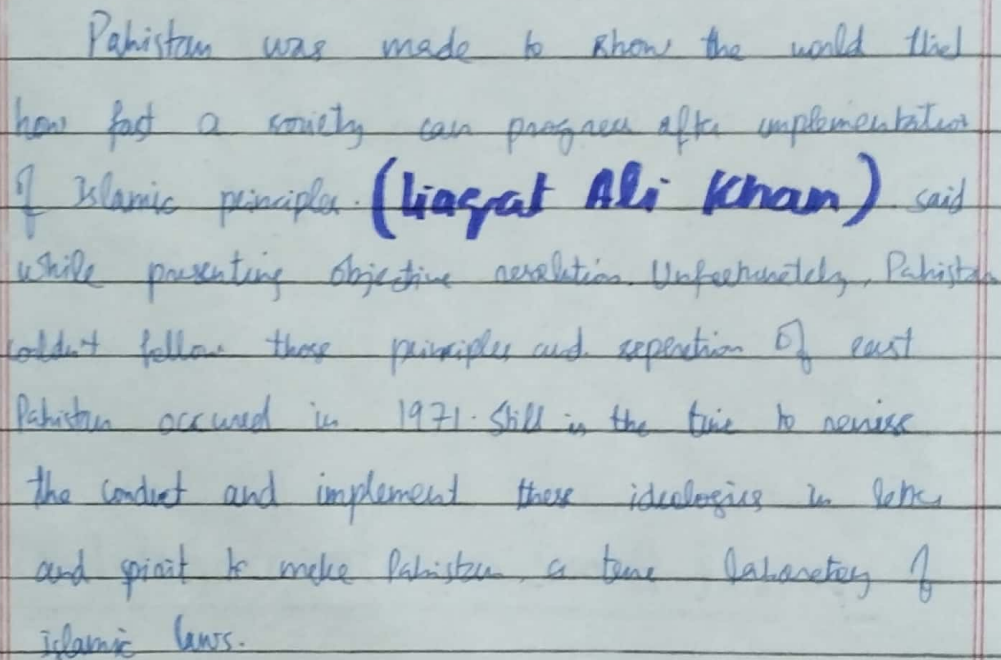 Pakistan was made to show the world that
how fast a society can progress after implementation
of Islamic principles. (Liaqat Ali Khan) said
while presenting objective resolution. Unfortunately, Pakistan
couldn't follow those principles and seperation of east
Pakistan occured in 1971. Still is the time to revise
the conduct and implement these ideologies in letter
and spirit to make Pakistan a true laboratory of
islamic laws.